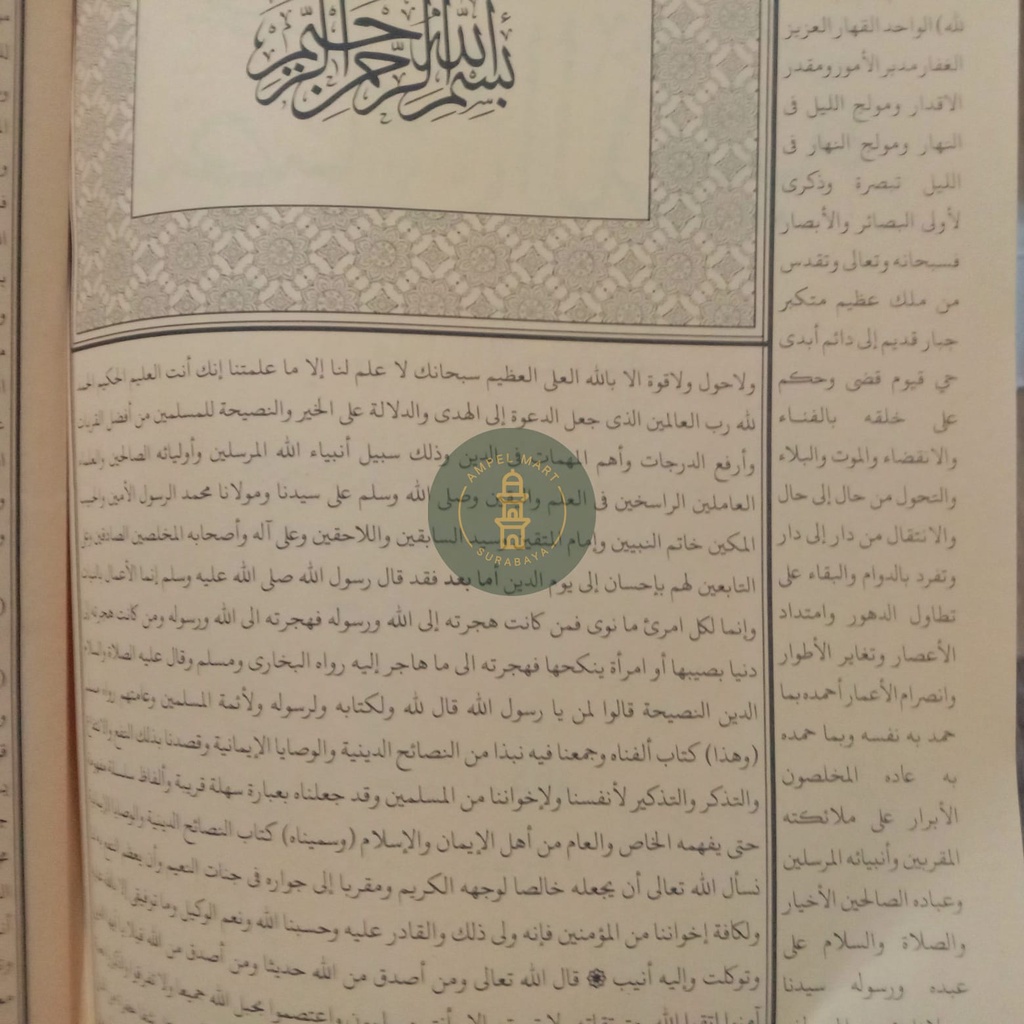 بسم الله الرحمن الرحيم
ولاحول ولاقوة الا بالله العلى العظيم سبحانك لا علم لنا إلا ما علمتنا إنك أنت العليم الحكيم
لله رب العالمين الذى جعل الدعوة إلى الهدى والدلالة على الخير والنصيحة للمسلمين من أفضل القربات
وأرفع الدرجات وأهم المهمات فى الدين وذلك سبيل أنبياء الله المرسلين وأوليائه الصالحين
العاملين الراسخين فى العلم واليقين وصلى الله وسلم على سيدنا ومولانا محمد الرسول الأمين
المكين خاتم النبيين وإمام المتقين وسيد السابقين واللاحقين وعلى آله وأصحابه المخلصين الصادقين
التابعين لهم بإحسان إلى يوم الدين أما بعد فقد قال رسول الله صلى الله عليه وسلم إنما الأعمال بالنيات
وإنما لكل امرئ ما نوى فمن كانت هجرته إلى الله ورسوله فهجرته الى الله ورسوله ومن كانت هجرته إلى
دنيا يصيبها أو امرأة ينكحها فهجرته الى ما هاجر إليه رواه البخارى ومسلم وقال عليه الصلاة والسلام
الدين النصيحة قالوا لمن يا رسول الله قال لله ولكتابه ولرسوله ولأئمة المسلمين وعامتهم رواه
(وهذا) كتاب ألفناه وجمعنا فيه نبذا من النصائح الدينية والوصايا الإيمانية وقصدنا بذلك النفع والانتفاع
والتذكر والتذكير لأنفسنا ولإخواننا من المسلمين وقد جعلناه بعبارة سهلة قريبة وألفاظ سلسلة
حتى يفهمه الخاص والعام من أهل الإيمان والإسلام (وسميناه) كتاب النصائح الدينية والوصايا
نسأل الله تعالى أن يجعله خالصا لوجهه الكريم ومقربا إلى جواره فى جنات النعيم وأن يعظم النفع
ولكافة إخواننا من المؤمنين فإنه ولى ذلك والقادر عليه وحسبنا الله ونعم الوكيل وما توفيقى إلا بالله
وتوكلت وإليه أنيب قال الله تعالى ومن أصدق من الله حديثا ومن أصدق من الله قيلا
واعتصموا بحبل الله جميعا ولا تفرقوا
لله) الواحد القهار العزيز
الغفار مدبر الأمور ومقدر
الاقدار ومولج الليل فى
النهار ومولج النهار فى
الليل تبصرة وذكرى
لأولى البصائر والأبصار
فسبحانه وتعالى وتقدس
من ملك عظيم متكبر
جبار قديم إلى دائم أبدى
حي قيوم قضى وحكم
على خلقه بالفناء
والانقضاء والموت والبلاء
والتحول من حال إلى حال
والانتقال من دار إلى دار
وتفرد بالدوام والبقاء على
تطاول الدهور وامتداد
الأعصار وتغاير الأطوار
وانصرام الأعمار أحمده بما
حمد به نفسه وبما حمده
به عاده المخلصون
الأبرار على ملائكته
المقربين وأنبيائه المرسلين
وعباده الصالحين الأخيار
والصلاة والسلام على
عبده ورسوله سيدنا
AMPEL MART
SURABAYA